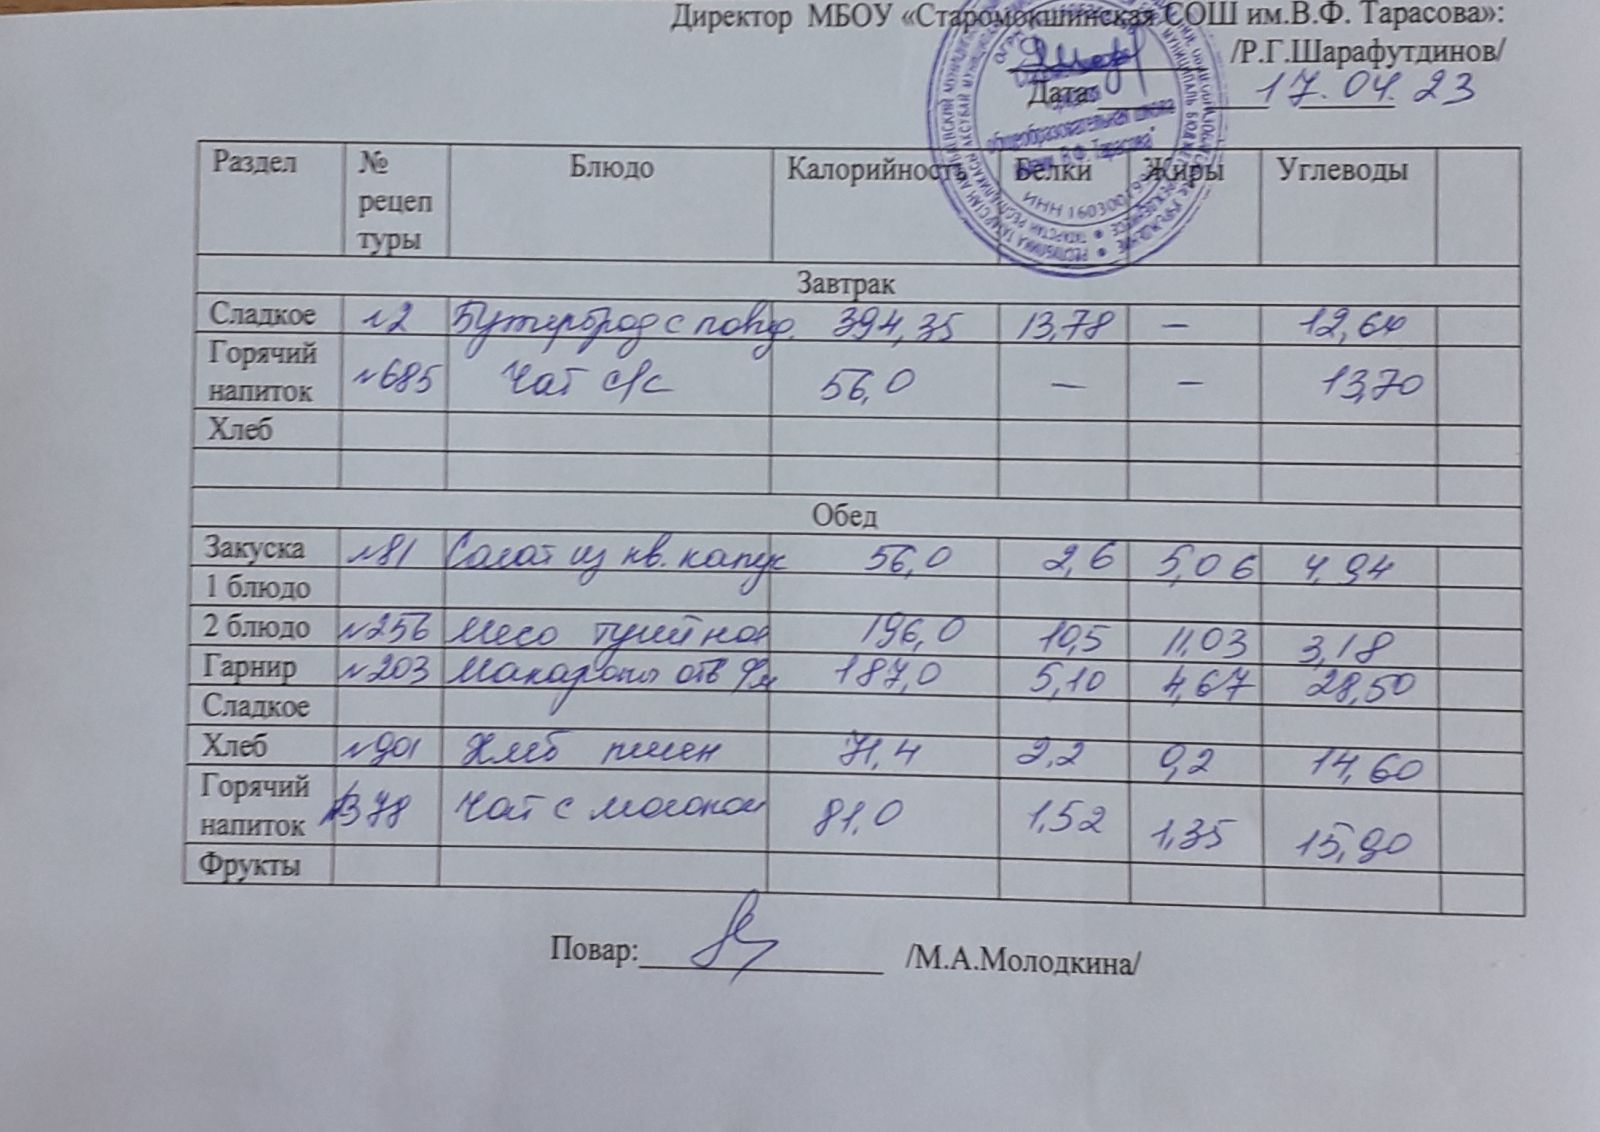 Директор МБОУ «Старомокшинская СОШ им.В.Ф. Тарасова»:
/Р.Г.Шарафутдинов/
Дата: 17.04.23
Раздел № рецеп туры Блюдо Калорийность Белки Жиры Углеводы
Завтрак
Сладкое №2 Бутерброд с повид. 394,35 13,78 – 12,64
Горячий напиток №685 Чай с/с 56,0 – – 13,70
Хлеб
Обед
Закуска №81 Салат из кв. капус 56,0 2,6 5,06 4,94
1 блюдо
2 блюдо №256 Мясо тушеное 196,0 10,5 11,03 3,18
Гарнир №203 Макароны отв 187,0 5,10 4,67 28,50
Сладкое
Хлеб №901 Хлеб пшен 71,4 2,2 0,2 14,60
Горячий напиток №378 Чай с молоком 81,0 1,52 1,35 15,90
Фрукты
Повар: /М.А.Молодкина/